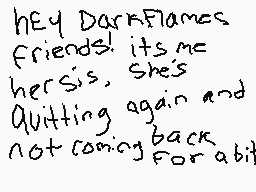 hEY DarkFlames
friends! its me
hersis, She's
Quitting again and
not coming back
For a bit